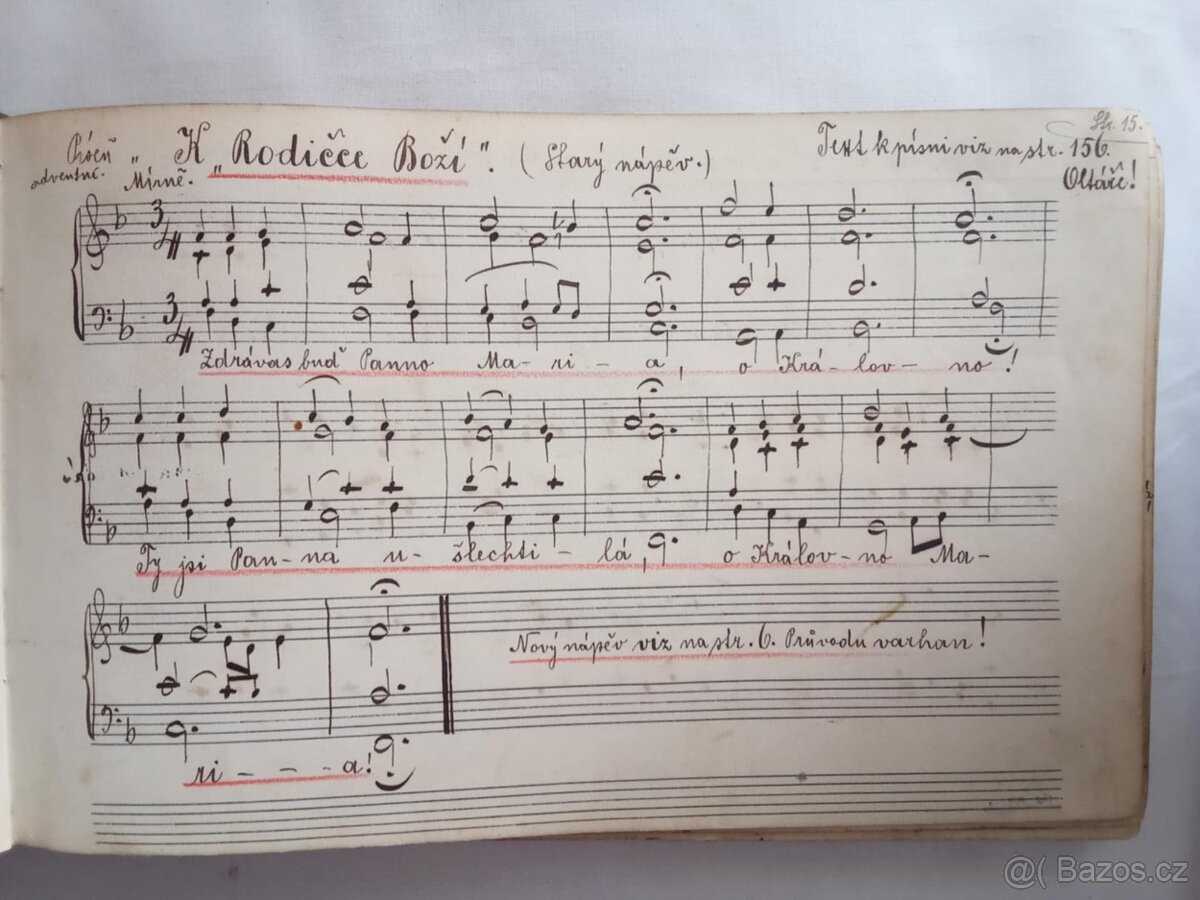 Str. 15.
Píseň adventní. "K Rodičce Boží". (Starý nápěv.) Text k písni viz na str. 156.
Mírně. Oltář!
3/4
3/4
Zdrávas buď Panno Ma- ri - a, o Krá- lov- no!
Ty jsi Pan- na u- šlechti - lá, o Králov- no Ma-
Nový nápěv viz na str. 6. Průvodu varhan!
ri - - - a!
@( Bazos.cz